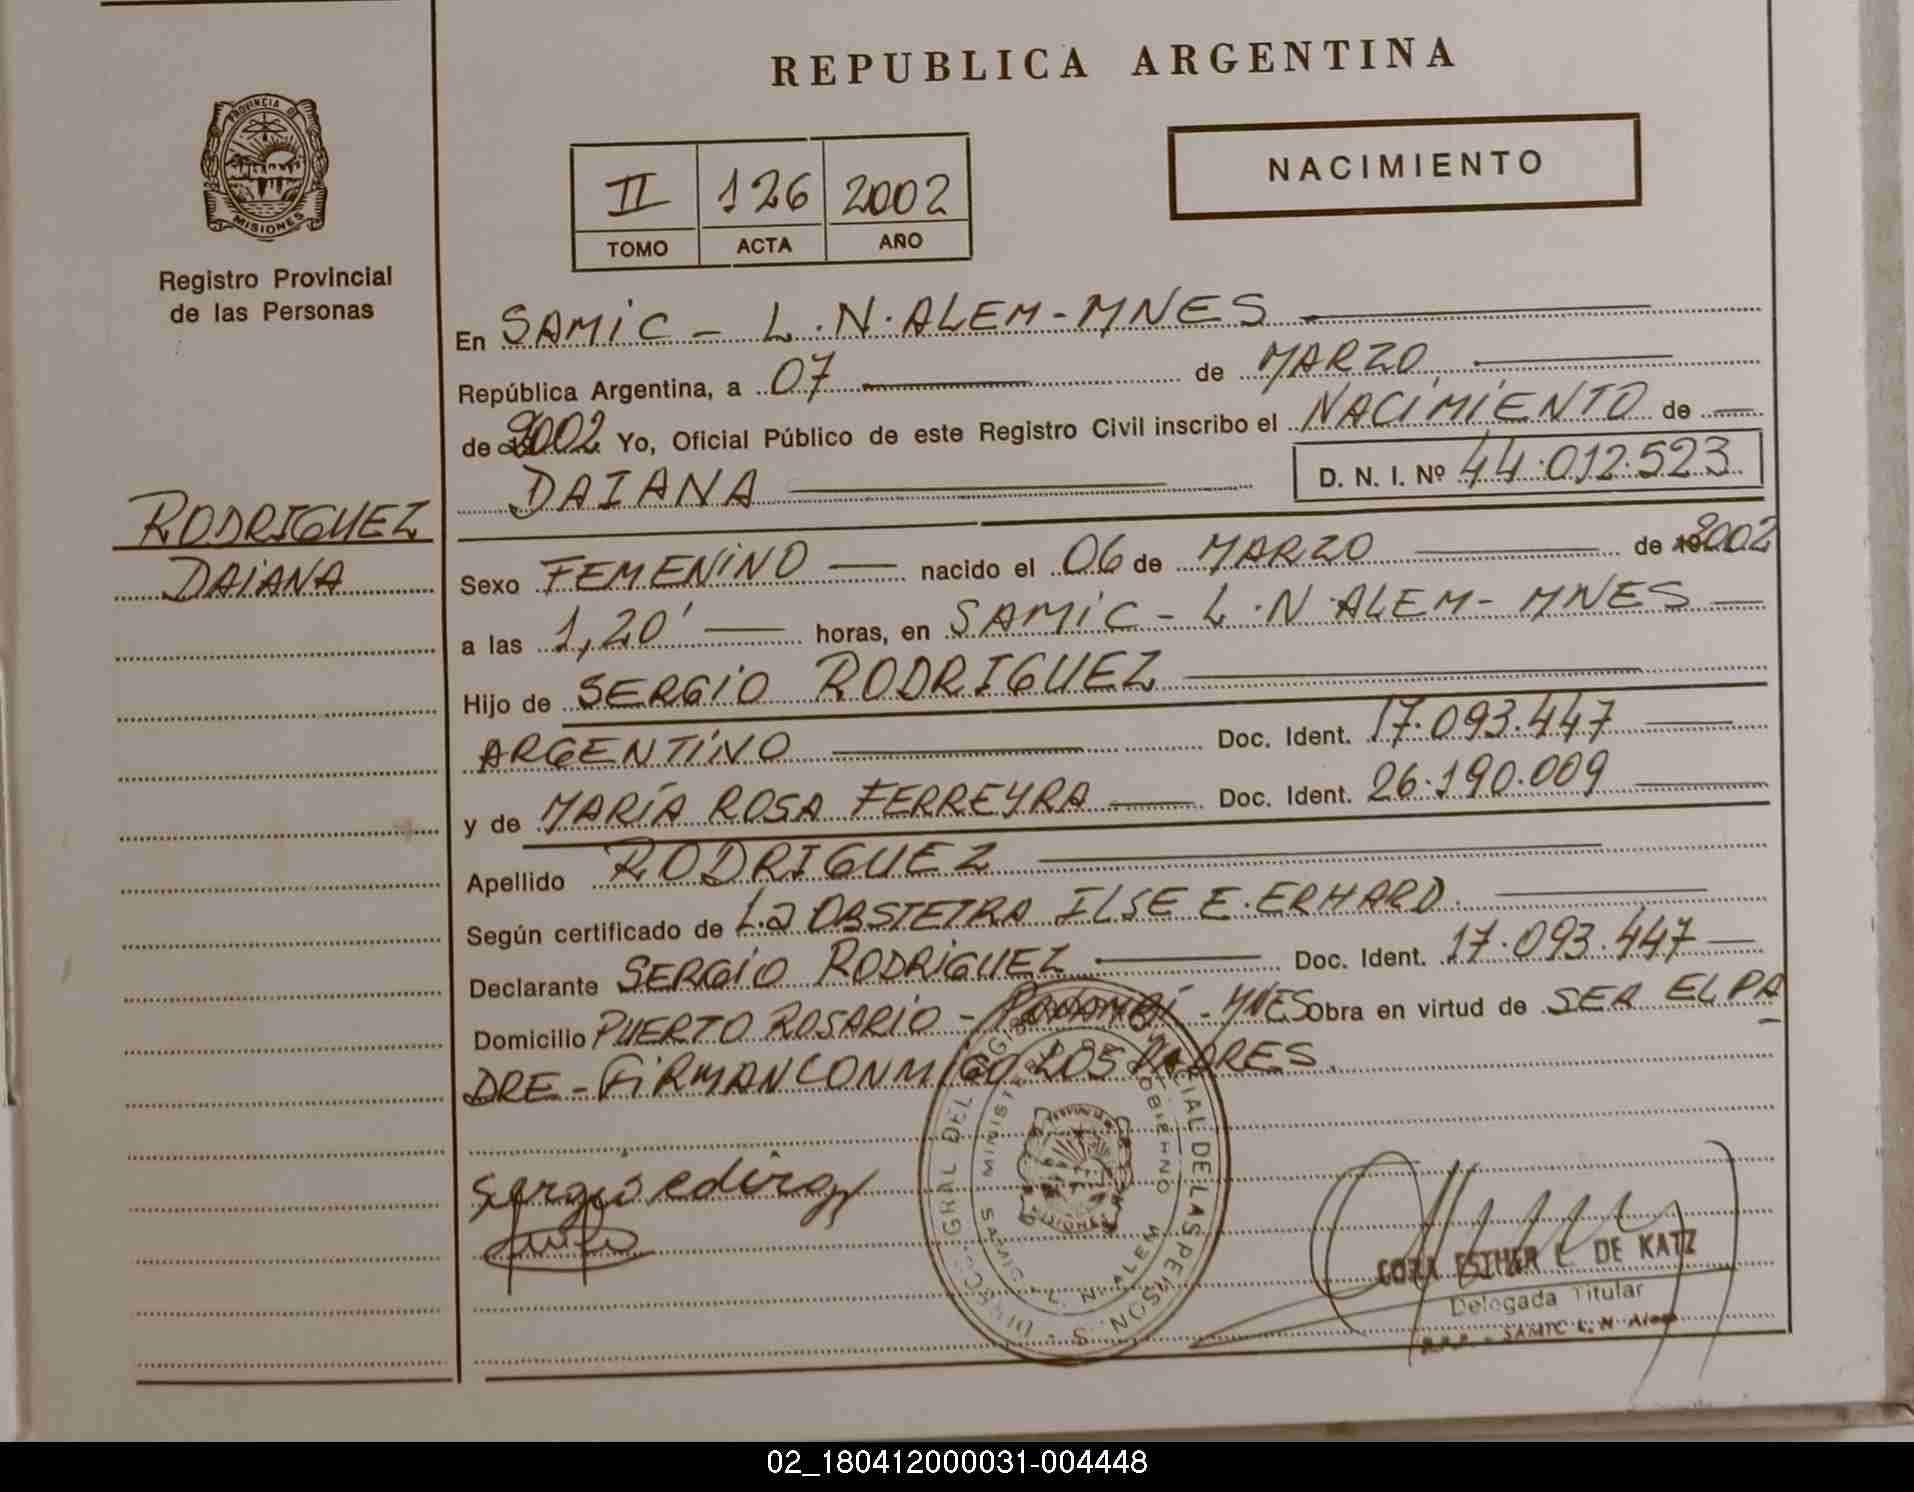 REPUBLICA ARGENTINA
PROVINCIA DE
MISIONES
Registro Provincial
de las Personas
NACIMIENTO
II 126 2002
TOMO ACTA AÑO
En SAMIC - L.N.ALEM-MNES
República Argentina, a 07 de MARZO
de 2002 Yo, Oficial Público de este Registro Civil inscribo el NACIMIENTO de
DAIANA D. N. I. Nº 44.012.523
RODRIGUEZ
DAIANA
Sexo FEMENINO nacido el 06 de MARZO de 2002
a las 1,20' horas, en SAMIC - L.N.ALEM- MNES
Hijo de SERGIO RODRIGUEZ
ARGENTINO Doc. Ident. 17.093.447
y de MARÍA ROSA FERREYRA Doc. Ident. 26.190.009
Apellido RODRIGUEZ
Según certificado de La OBSTETRA ILSE E. ERHARD.
Declarante SERGIO RODRIGUEZ Doc. Ident. 17.093.447
Domicilio PUERTO ROSARIO - PANAMBÍ - MNES Obra en virtud de SER EL PA
DRE - FIRMAN CONMIGO LOS PADRES.
GRAL DEL CIAL DE LAS PERSONAS
GOBIERNO
SAMIC L. N. ALEM
MISIONES
Sergio
ESTHER L. DE KATZ
Delegada Titular
SAMIC L. N. Alem
02_180412000031-004448